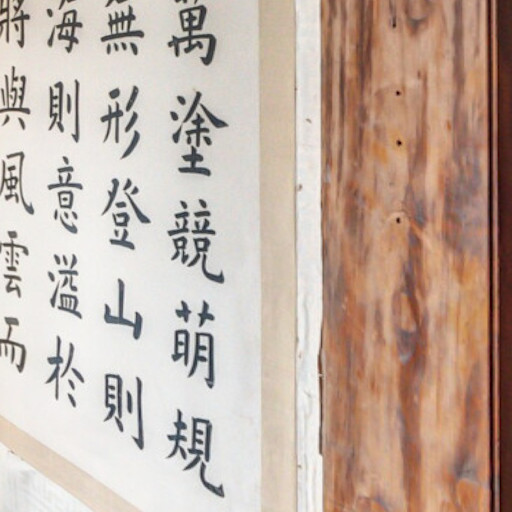 萬塗競萌規
無形登山則
海則意溢於
將與風雲而